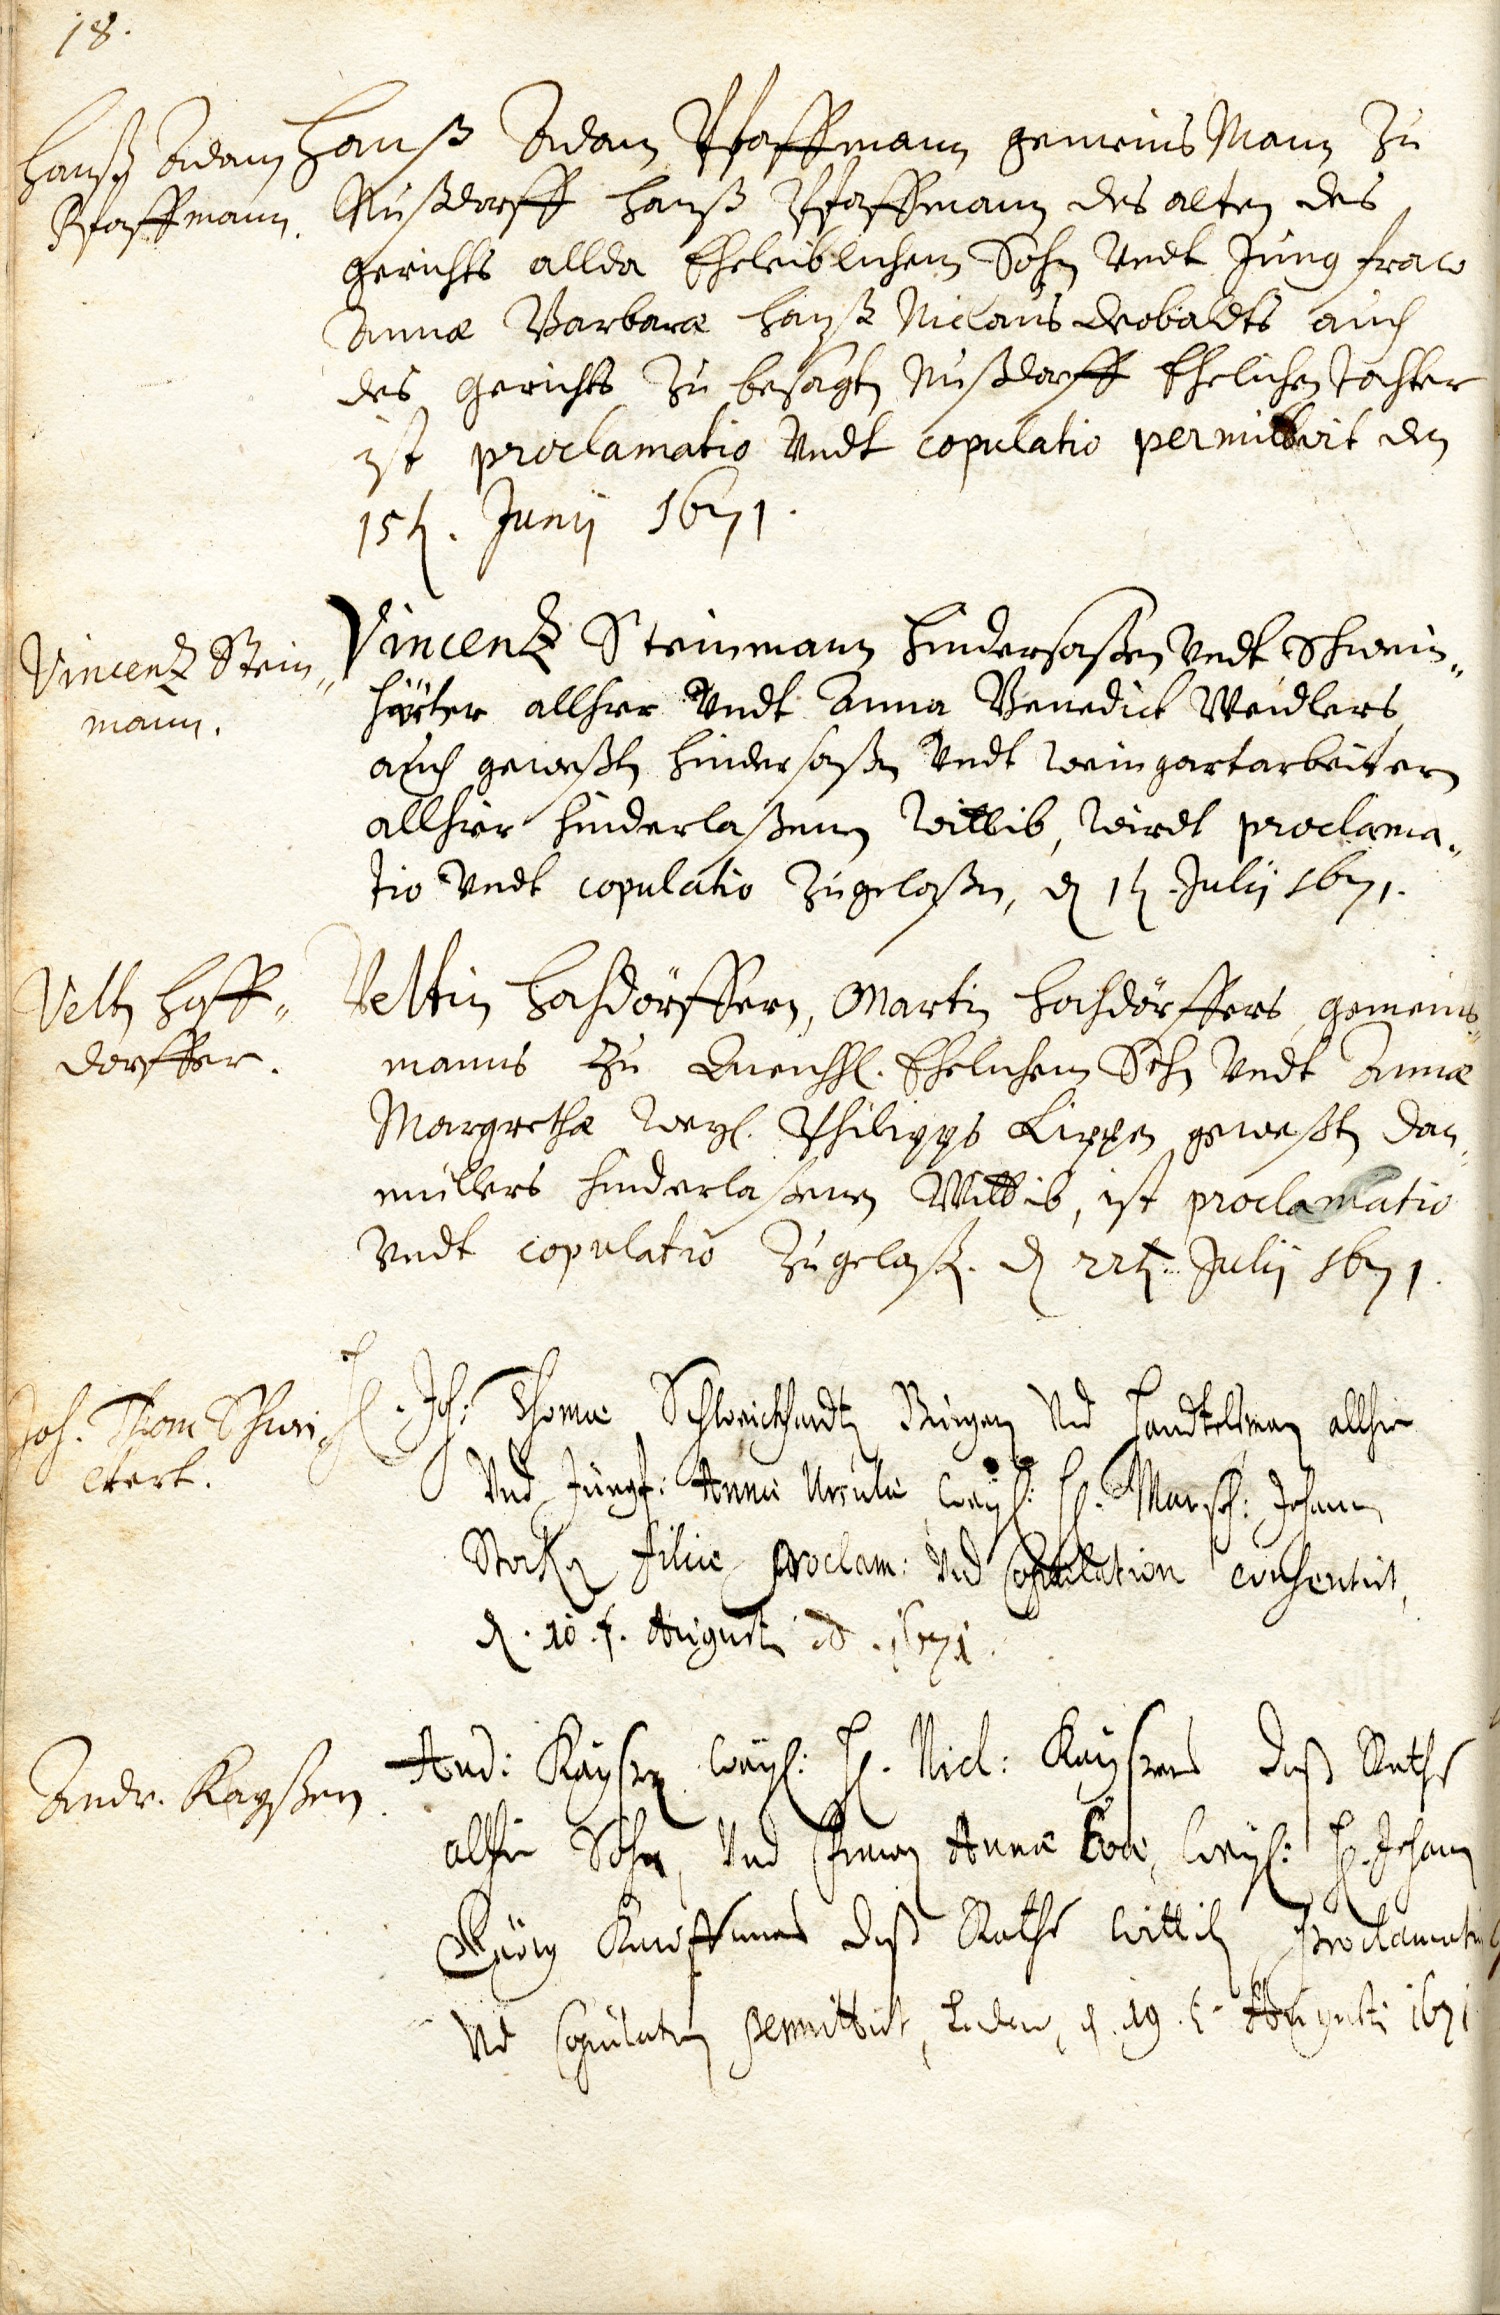 18.
Hanß Adam
Pfaffmann.
Hanß Adam Pfaffmann gemeins Mann zu
Nußdorff Hanß Pfaffmann des alten des
gerichts allda Eheleiblichem Sohn Vndt Jung fraw
Annæ Barbaræ Hanß Niclaus Deobaldts auch
des gerichts zu besagtn Nußdorff Ehelichen Tochter
ist proclamatio Vndt copulatio permittirt den
15t. Junij 1671.
Vincentz Stein„
mann.
Vincentz Steinmann Hindersaßen Vndt Schwein„
hürter allhier Vndt Anna Benedict Weidlers
auch geweßtn Hindersaßn Vndt weingartarbeitern
allhier hinderlaßenen Wittib, Wirdt proclama„
tio Vndt copulatio zugelaßen, d 1t Julij 1671.
Veltn Hoff„
dörffer.
Veltin Hochdörffern, Martin Hochdörffers, gemeins„
manns zu Queichh. Ehelichem Sohn Vndt Annæ
Margrethæ Weyl. Philipps Lippen geweßtn Dam„
müllers hinderlaßenen Wittib, ist proclamatio
Vndt copulatio zugelaß. d 22t. Julij 1671.
Joh. Thom Schwei„
ckert.
H. Joh: Thomæ Schweickhardt Burgern Vnd Handtelsman allhie
Vnd Jungf: Annæ Ursulæ Weyl: H. Johann
filiæ Proclam: Vnd Copulation consentirt,
d. 10. t. Augusti 1671.
Andr. Kayßern
And: Kaysern Weyl: H. Nicl: Kaysers deß Raths
allhie Sohn, Vnd Frawen Annæ Evæ, Weyl: H. Johann
Görg deß Raths Wittib Proclamation
Vnd Copulation permittirt, d. 19. t. Augusti 1671